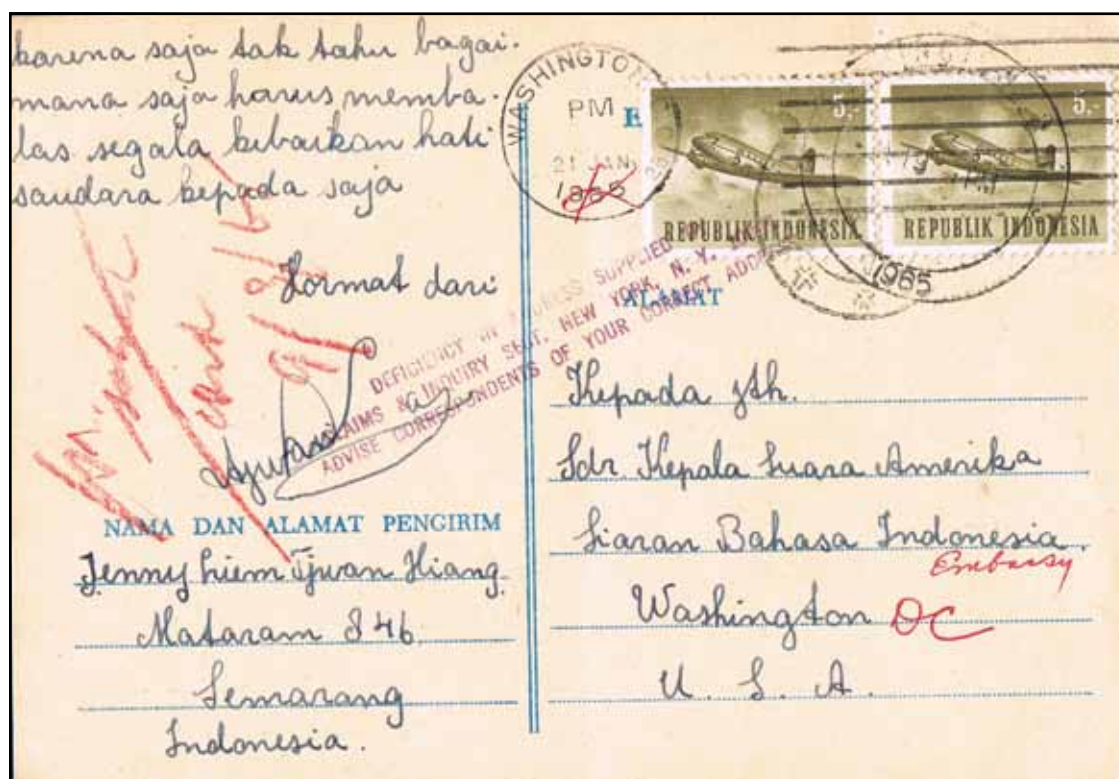 karena saja tak tahu bagai-
mana saja harus memba-
las segala kebaikan hati
saudara kepada saja
Hormat dari
NAMA DAN ALAMAT PENGIRIM
Jenny Liem Tjwan Hiang.
Mataram 846.
Semarang
Indonesia.
WASHINGTON
PM
21 JAN
5,-
REPUBLIK INDONESIA
5,-
REPUBLIK INDONESIA
1965
DEFICIENCY IN ADDRESS SUPPLIED
CLAIMS & INQUIRY SECT. NEW YORK, N. Y.
ADVISE CORRESPONDENTS OF YOUR CORRECT ADDRESS
ALAMAT
Kepada jth.
Sdr. Kepala Suara Amerika
Siaran Bahasa Indonesia.
Embassy
Washington DC
U. S. A.